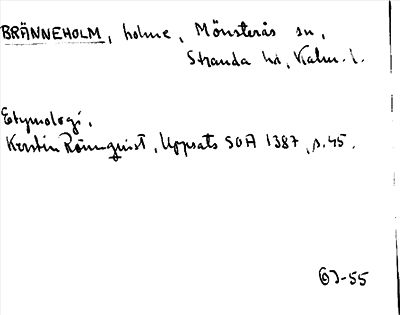 BRÄNNEHOLM, holme, Mönsterås sn,
Stranda hd, Kalm. l.
Etymologi.
Kerstin Rönnquist, Uppsats SOA 1387, s. 45.
-55